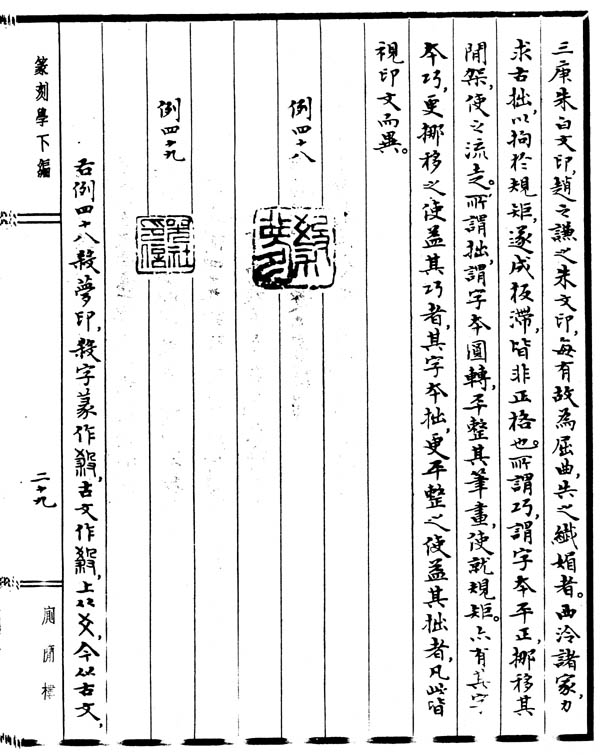 三庚朱白文印，趙之謙之朱文印，每有故為屈曲，失之纖媚者。西泠諸家，力
求古拙，以拘於規矩，遂成板滯，皆非正格也。所謂巧，謂字本平正，挪移其
間架，使之流走。所謂拙，謂字本圓轉，平整其筆畫，使就規矩。亦有其字
本巧，更挪移之使益其巧者，其字本拙，更平整之使益其拙者，凡此皆
視印文而異。
例四十八
例四十九
右例四十八殺夢印，殺字篆作殺，古文作殺，上从爻，今从古文，
篆刻學下編
二十九